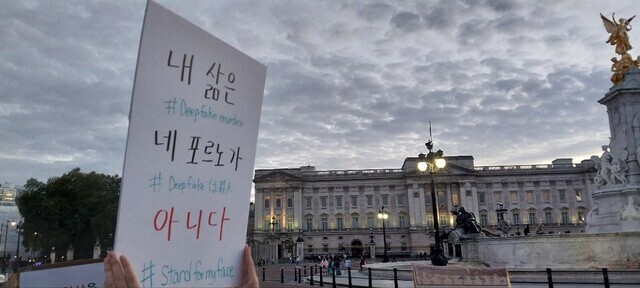 내 삶은
#Deepfake murder
네 포르노가
#Deepfake は殺人
아니다
#Standformyface